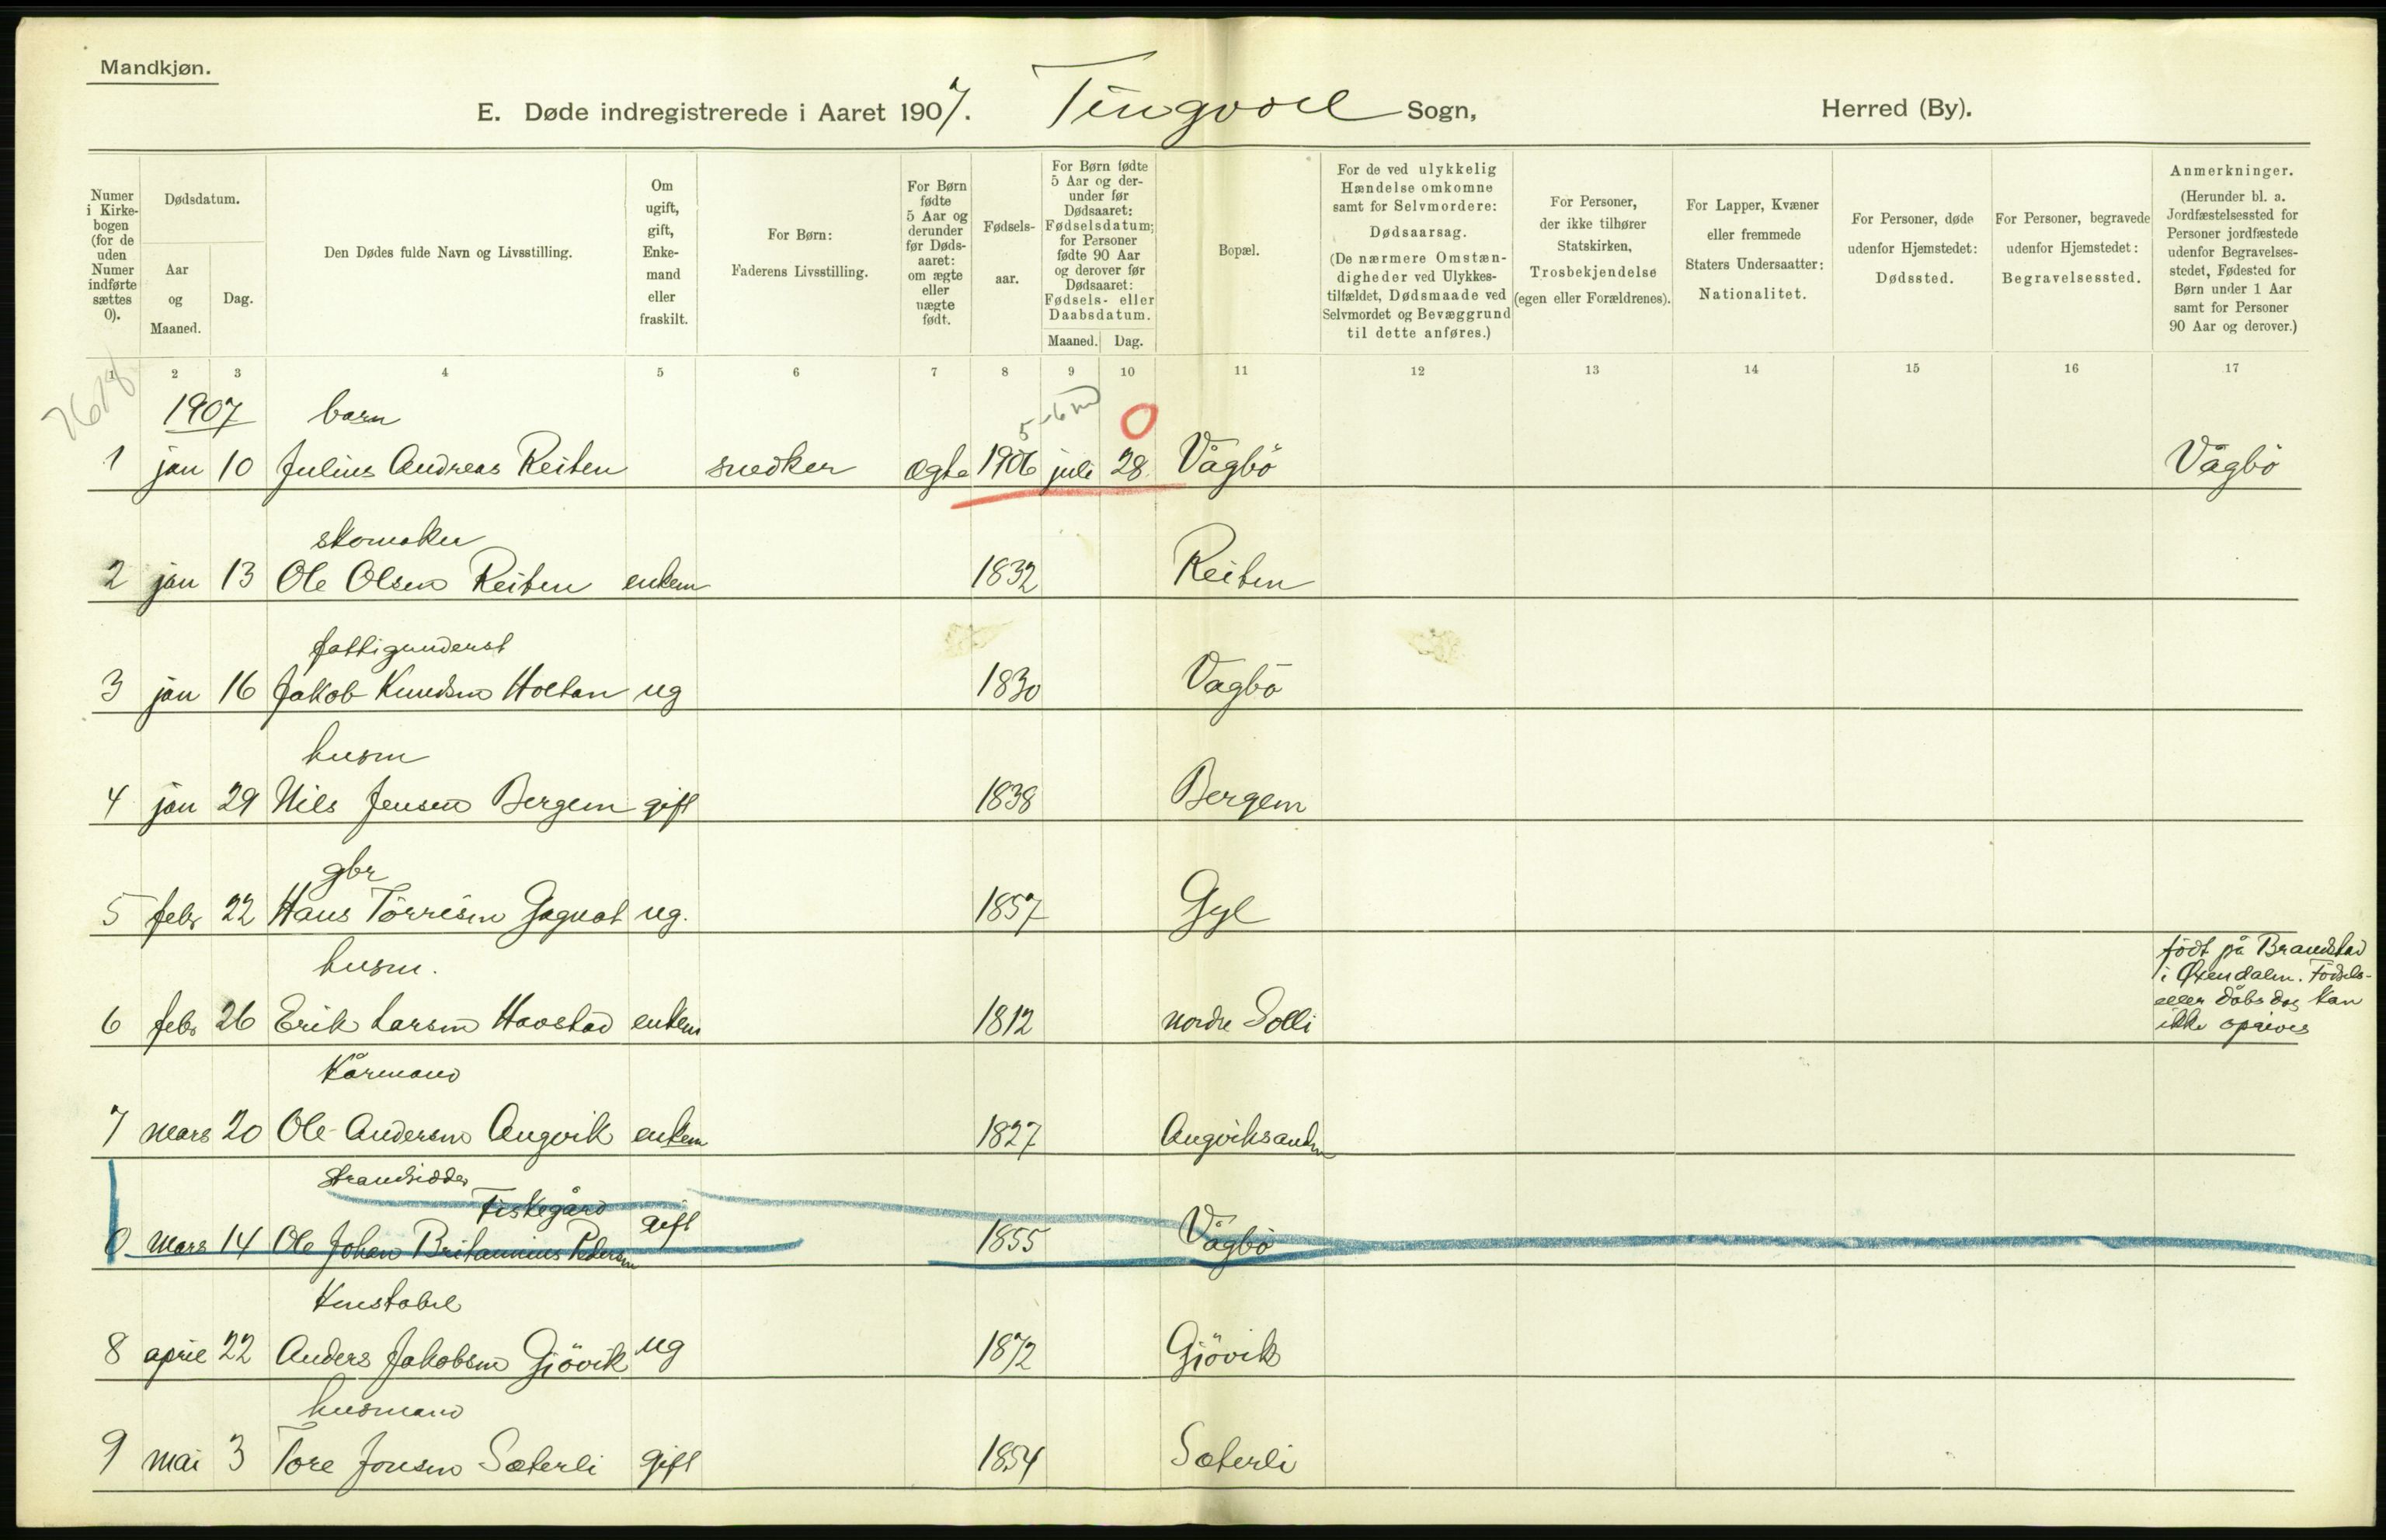 Mandkjøn.
E. Døde indregistrerede i Aaret 1907. Tingvoll Sogn, Herred (By).
Numer i Kirkebogen (for de uden Numer indførte sættes 0).
Dødsdatum.
Aar og Maaned.
Dag.
Den Dødes fulde Navn og Livsstilling.
Om ugift, gift, Enkemand eller fraskilt.
For Børn: Faderens Livsstilling.
For Børn fødte 5 Aar og derunder før Dødsaaret: om ægte eller uægte født.
Fødselsaar.
For Børn fødte 5 Aar og derunder før Dødsaaret: Fødselsdatum; for Personer fødte 90 Aar og derover før Dødsaaret: Fødsels- eller Daabsdatum.
Maaned. Dag.
Bopæl.
For de ved ulykkelig Hændelse omkomne samt for Selvmordere: Dødsaarsag. (De nærmere Omstændigheder ved Ulykkestilfældet, Dødsmaade ved Selvmordet og Bevæggrund til dette anføres.)
For Personer, der ikke tilhører Statskirken, Trosbekjendelse (egen eller Forældrenes).
For Lapper, Kvæner eller fremmede Staters Undersaatter: Nationalitet.
For Personer, døde udenfor Hjemstedet: Dødssted.
For Personer, begravede udenfor Hjemstedet: Begravelsessted.
Anmerkninger. (Herunder bl. a. Jordfæstelsessted for Personer jordfæstede udenfor Begravelsesstedet, Fødested for Børn under 1 Aar samt for Personer 90 Aar og derover.)
1 2 3 4 5 6 7 8 9 10 11 12 13 14 15 16 17
1907 barn 5-6 m 0
1 jan 10 Julius Andreas Reiten snedker ægte 1906 juli 28 Vågbö Vågbö
skomaker
2 jan 13 Ole Olsen Reiten enkem 1832 Reiten
fattigunderst
3 jan 16 Jakob Knudsen Holtan ug 1830 Vagbö
husm
4 jan 29 Nils Jensen Bergem gift 1838 Bergem
gbr
5 febr 22 Hans Törrisen Gagnat ug. 1857 Gyl
husm.
6 febr 26 Erik Larsen Havstad enkem 1812 nordre Solli
født på Brandstad
i Øxendalen. Fødsels-
eller dåbsdag kan
ikke opgives
Kårmand
7 mars 20 Ole Andersen Angvik enkem 1827 Angviksanden
Strandsidder
Fiskegård
0 mars 14 Ole Johan Britannius Pedersen gift 1855 Vågbö
Konstabel
8 april 22 Anders Jakobsen Gjövik ug 1872 Gjövik
husmand
9 mai 3 Tore Jonsen Sæterli gift 1854 Sæterli